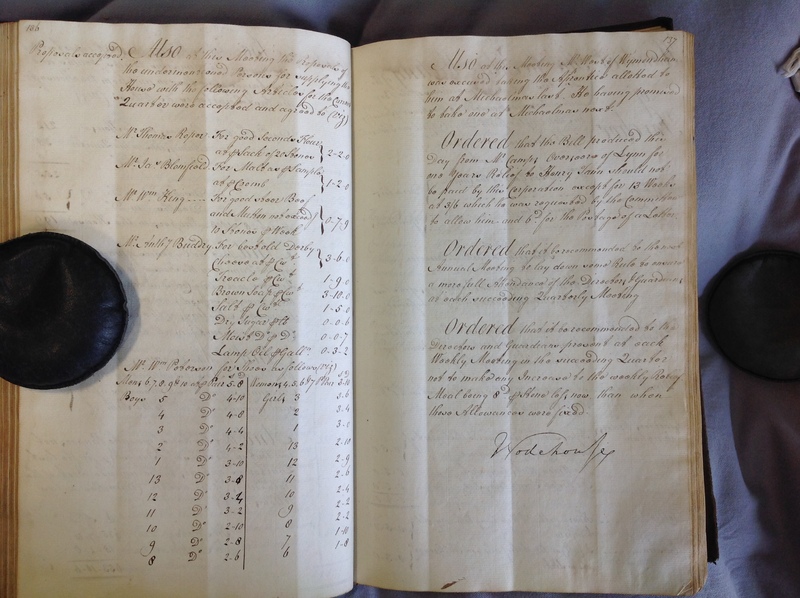 186
Proposals accepted. Also at this Meeting the Proposals of
the undermentioned Persons for supplying the
House with the following Articles for the Current
Quarter were accepted and agreed to (Viz)
Mr. Thomas Roper For good Seconds Flour
at p Sack of 21 Stones } 2-2-0
Mr. Jas. Blomfield For Malt as p Sample
at p Comb } 1-2-0
Mr. Wm. King .... For good shear Beef
and Mutton not exceed
12 Stones p Week } 0-7-9
Mr. Anthy. Buddry For best old Derby
Cheese at p Cwt. } 3-6-0
Treacle p Cwt. 1-9-0
Brown Soap p Cwt. 3-10-0
Salt p Cwt. 1-5-0
Dry Sugar p lb 0-0-8
Moist Do. p Do. 0-0-7
Lamp Oil p Galln. 0-3-2
Mr. Wm. Peterson for Shoes as follows (Viz)
Mens 6, 7, 8, 9 & 10 at p Pair 5-8 Womens 4, 5, 6 & 7 p Pair 3-10
Boys 5 Do. 4-10 Girls 3
4 Do. 4-8 2 3-4
3 Do. 4-4 1
2 Do. 4-2 13 2-10
1 Do. 3-10 12 2-9
13 Do. 3-8 11 2-6
12 Do. 3-4 10 2-4
11 Do. 3-2 9 2-2
10 Do. 2-10 8 2-2
9 Do. 2-8 7 1-10
8 Do. 2-6 6 1-8
187
Also at this Meeting Mr. West of Wymondham
was excused taking the Apprentice allotted to
him at Michaelmas last. He having promised
to take one at Michaelmas next.
Ordered that the Bill produced this
day from Mr. Camps Overseer of Lynn for
one Years Relief to Henry Sain should not
be paid by this Corporation except for 13 Weeks
at 3/6 which he was requested by the Committee
to allow him and 6d. for the Postage of a Letter.
Ordered that it be recommended to the next
Annual Meeting to lay down some Rule to ensure
a more full attendance of the Directors & Guardians
at each succeeding Quarterly Meeting
Ordered that it be recommended to the
Directors and Guardians present at each
Weekly Meeting in the succeeding Quarter
not to make any Increase to the weekly Rates
Meal being 8d. p Stone less now, than when
those Allowances were fixed
Wodehouse